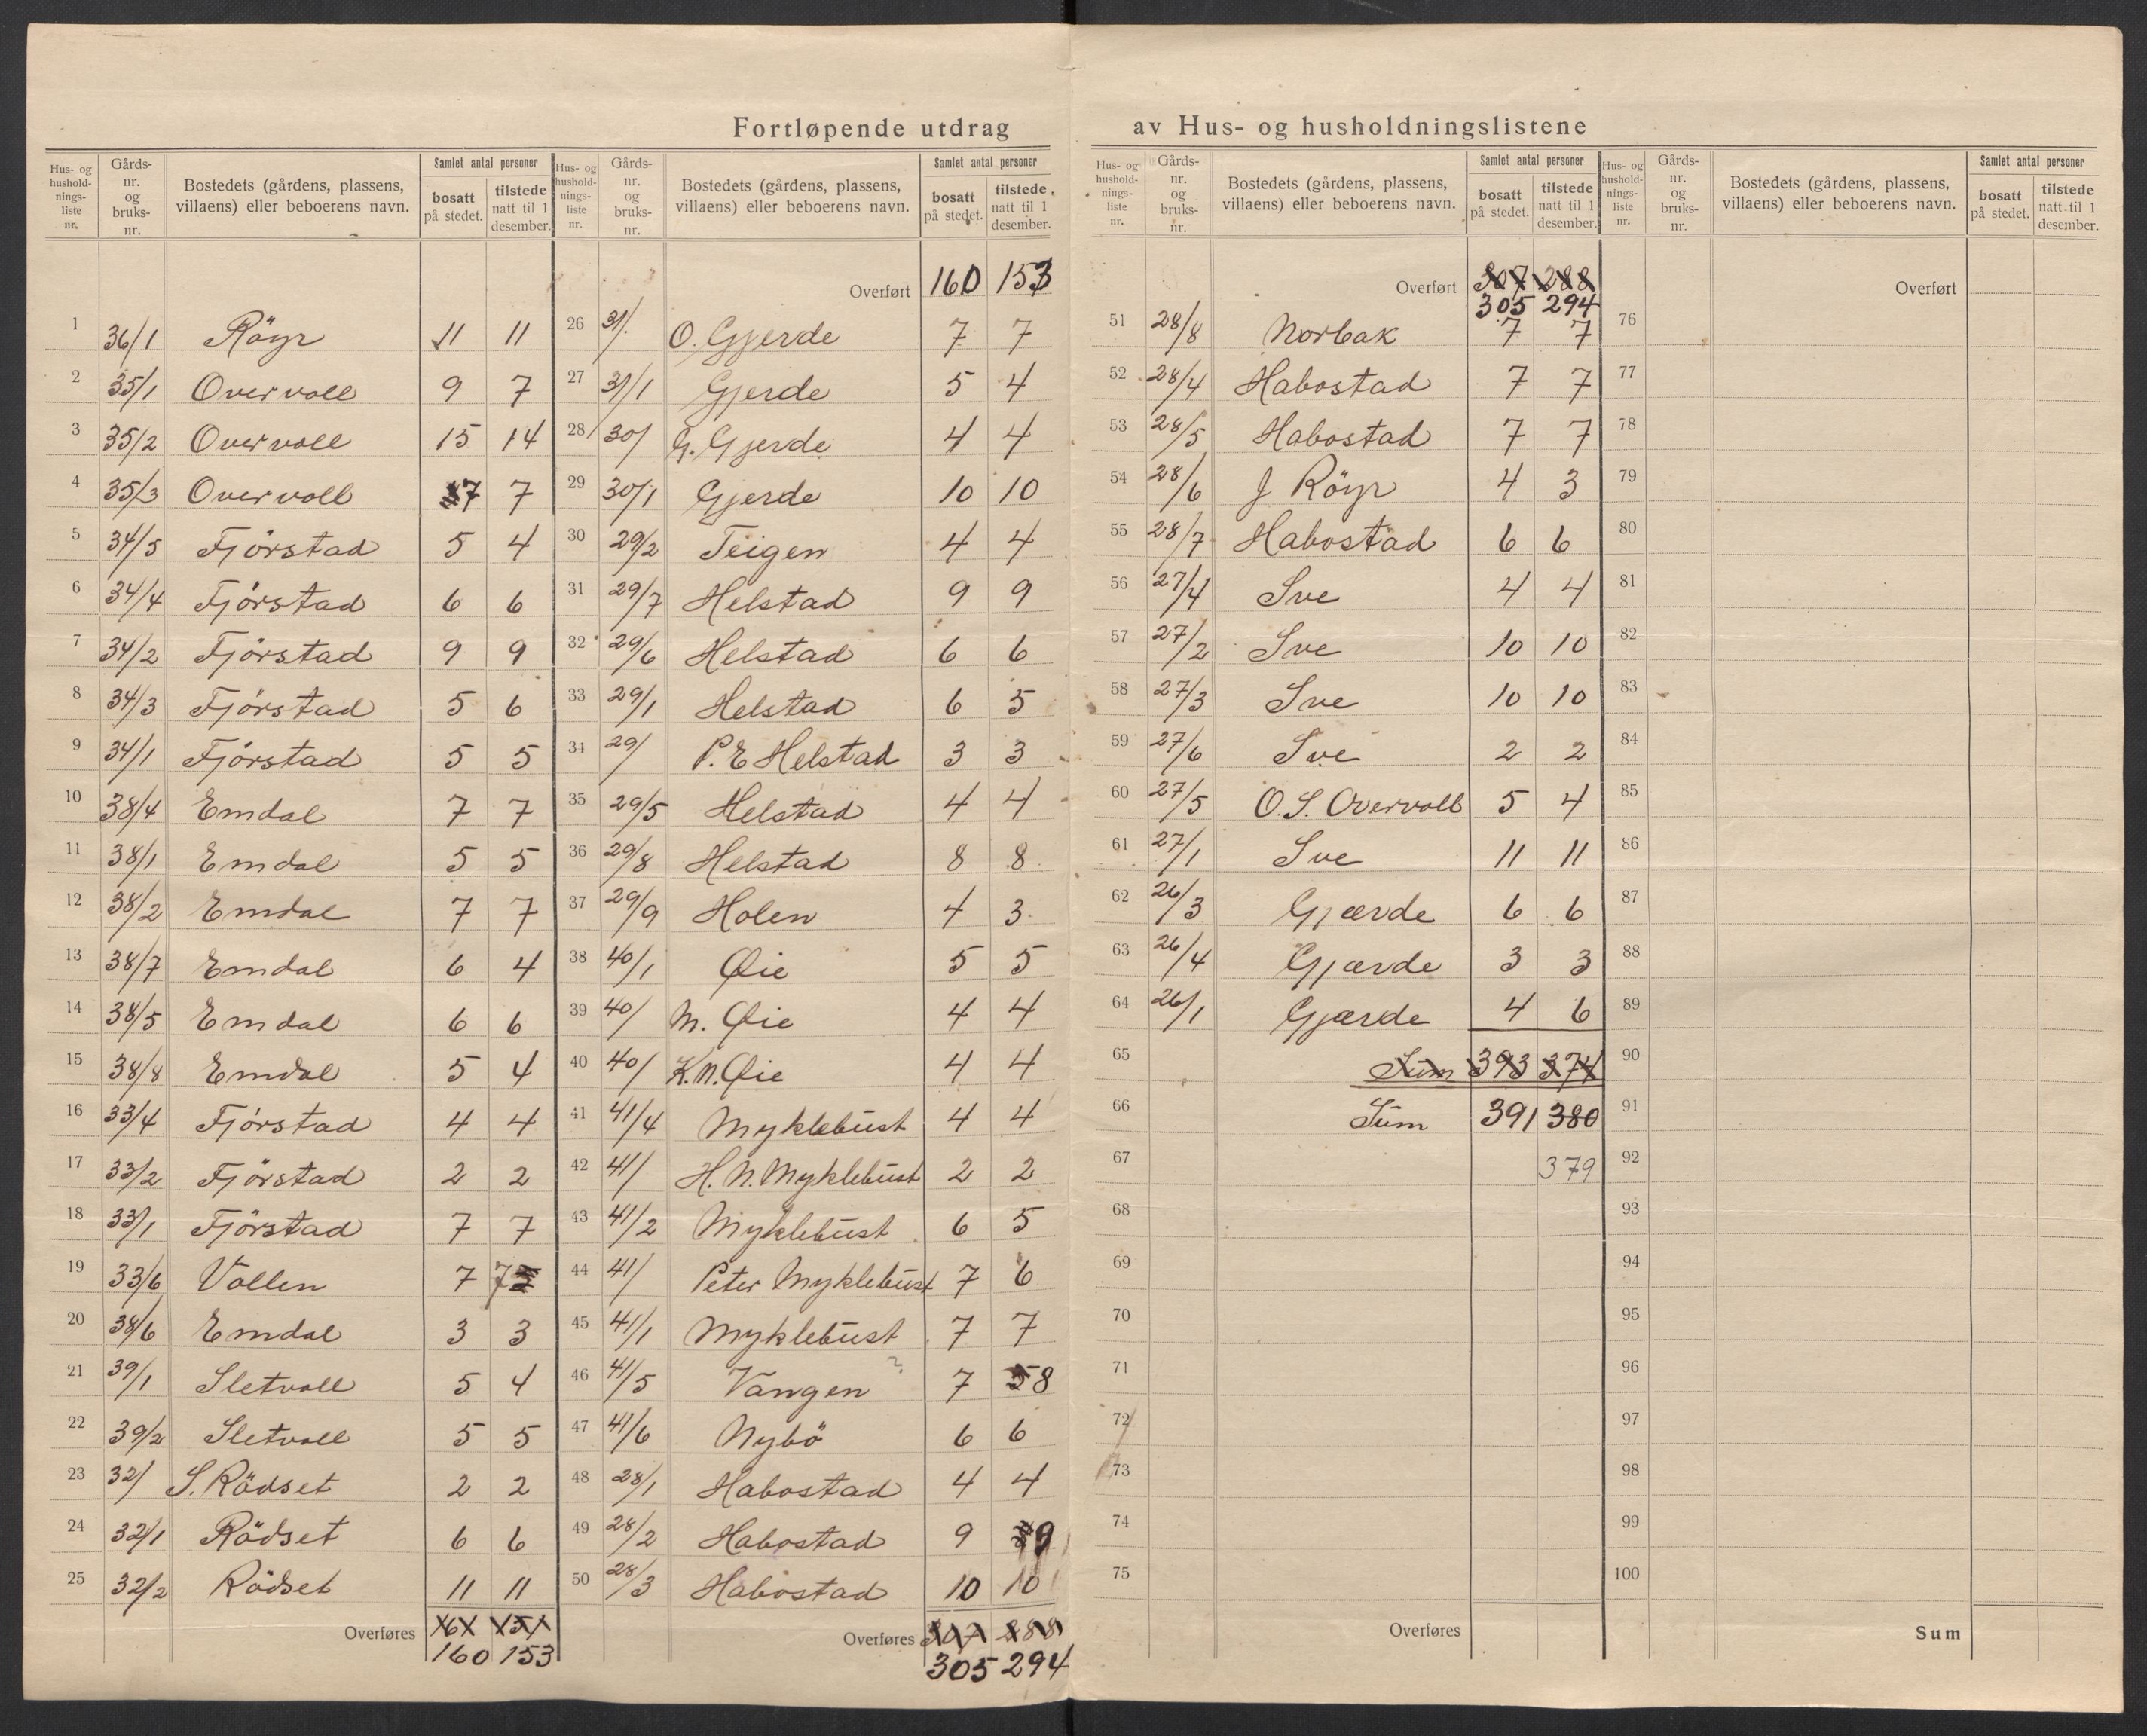 Fortløpende utdrag av Hus- og husholdningslistene
Hus- og hushold-nings-liste nr. | Gårds-nr. og bruks-nr. | Bostedets (gårdens, plassens, villaens) eller beboerens navn. | Samlet antal personer bosatt på stedet. | tilstede natt til 1 desember.
1 36/1 Röyr 11 11
2 35/1 Overvoll 9 7
3 35/2 Overvoll 15 14
4 35/3 Overvoll 7 7
5 34/5 Fjörstad 5 4
6 34/4 Fjörstad 6 6
7 34/2 Fjörstad 9 9
8 34/3 Fjörstad 5 6
9 34/1 Fjörstad 5 5
10 38/4 Emdal 7 7
11 38/1 Emdal 5 5
12 38/2 Emdal 7 7
13 38/7 Emdal 6 4
14 38/5 Emdal 6 6
15 38/8 Emdal 5 4
16 33/4 Fjörstad 4 4
17 33/2 Fjörstad 2 2
18 33/1 Fjörstad 7 7
19 33/6 Vollen 7 7
20 38/6 Emdal 3 3
21 39/1 Sletvoll 5 4
22 39/2 Sletvoll 5 5
23 32/ S. Rödset 2 2
24 32/1 Rödset 6 6
25 32/2 Rödset 11 11
Overføres 161 151
160 153
Hus- og hushold-nings-liste nr. | Gårds-nr. og bruks-nr. | Bostedets (gårdens, plassens, villaens) eller beboerens navn. | Samlet antal personer bosatt på stedet. | tilstede natt til 1 desember.
Overført 160 153
26 31/. O. Gjerde 7 7
27 31/1 Gjerde 5 4
28 30/ G. Gjerde 4 4
29 30/1 Gjerde 10 10
30 29/2 Teigen 4 4
31 29/7 Helstad 9 9
32 29/6 Helstad 6 6
33 29/1 Helstad 6 5
34 29/ P. E Helstad 3 3
35 29/5 Helstad 4 4
36 29/8 Helstad 8 8
37 29/9 Holen 4 3
38 40/1 Øie 5 5
39 40/ N. Øie 4 4
40 40/ K. N. Øie 4 4
41 41/4 Myklebust 4 4
42 41/ H. N. Myklebust 2 2
43 41/2 Myklebust 6 5
44 41/ Peter Myklebust 7 6
45 41/1 Myklebust 7 7
46 41/5 Vangen ? 7 8
47 41/6 Nybö 6 6
48 28/1 Habostad 4 4
49 28/2 Habostad 9 9
50 28/3 Habostad 10 10
Overføres 307 288
305 294
Hus- og hushold-nings-liste nr. | Gårds-nr. og bruks-nr. | Bostedets (gårdens, plassens, villaens) eller beboerens navn. | Samlet antal personer bosatt på stedet. | tilstede natt til 1 desember.
Overført 307 288
305 294
51 28/8 Norbak 7 7
52 28/4 Habostad 7 7
53 28/5 Habostad 7 7
54 28/6 J Röyr 4 3
55 28/7 Habostad 6 6
56 27/4 Sve 4 4
57 27/2 Sve 10 10
58 27/3 Sve 10 10
59 27/6 Sve 2 2
60 27/5 O. S. Overvoll 5 4
61 27/1 Sve 11 11
62 26/3 Gjærde 6 6
63 26/4 Gjærde 3 3
64 26/1 Gjærde 4 6
65 Sum 393 374
66 Sum 391 380
67 379
68
69
70
71
72
73
74
75
Overføres
Hus- og hushold-nings-liste nr. | Gårds-nr. og bruks-nr. | Bostedets (gårdens, plassens, villaens) eller beboerens navn. | Samlet antal personer bosatt på stedet. | tilstede natt til 1 desember.
Overført
76
77
78
79
80
81
82
83
84
85
86
87
88
89
90
91
92
93
94
95
96
97
98
99
100
Sum